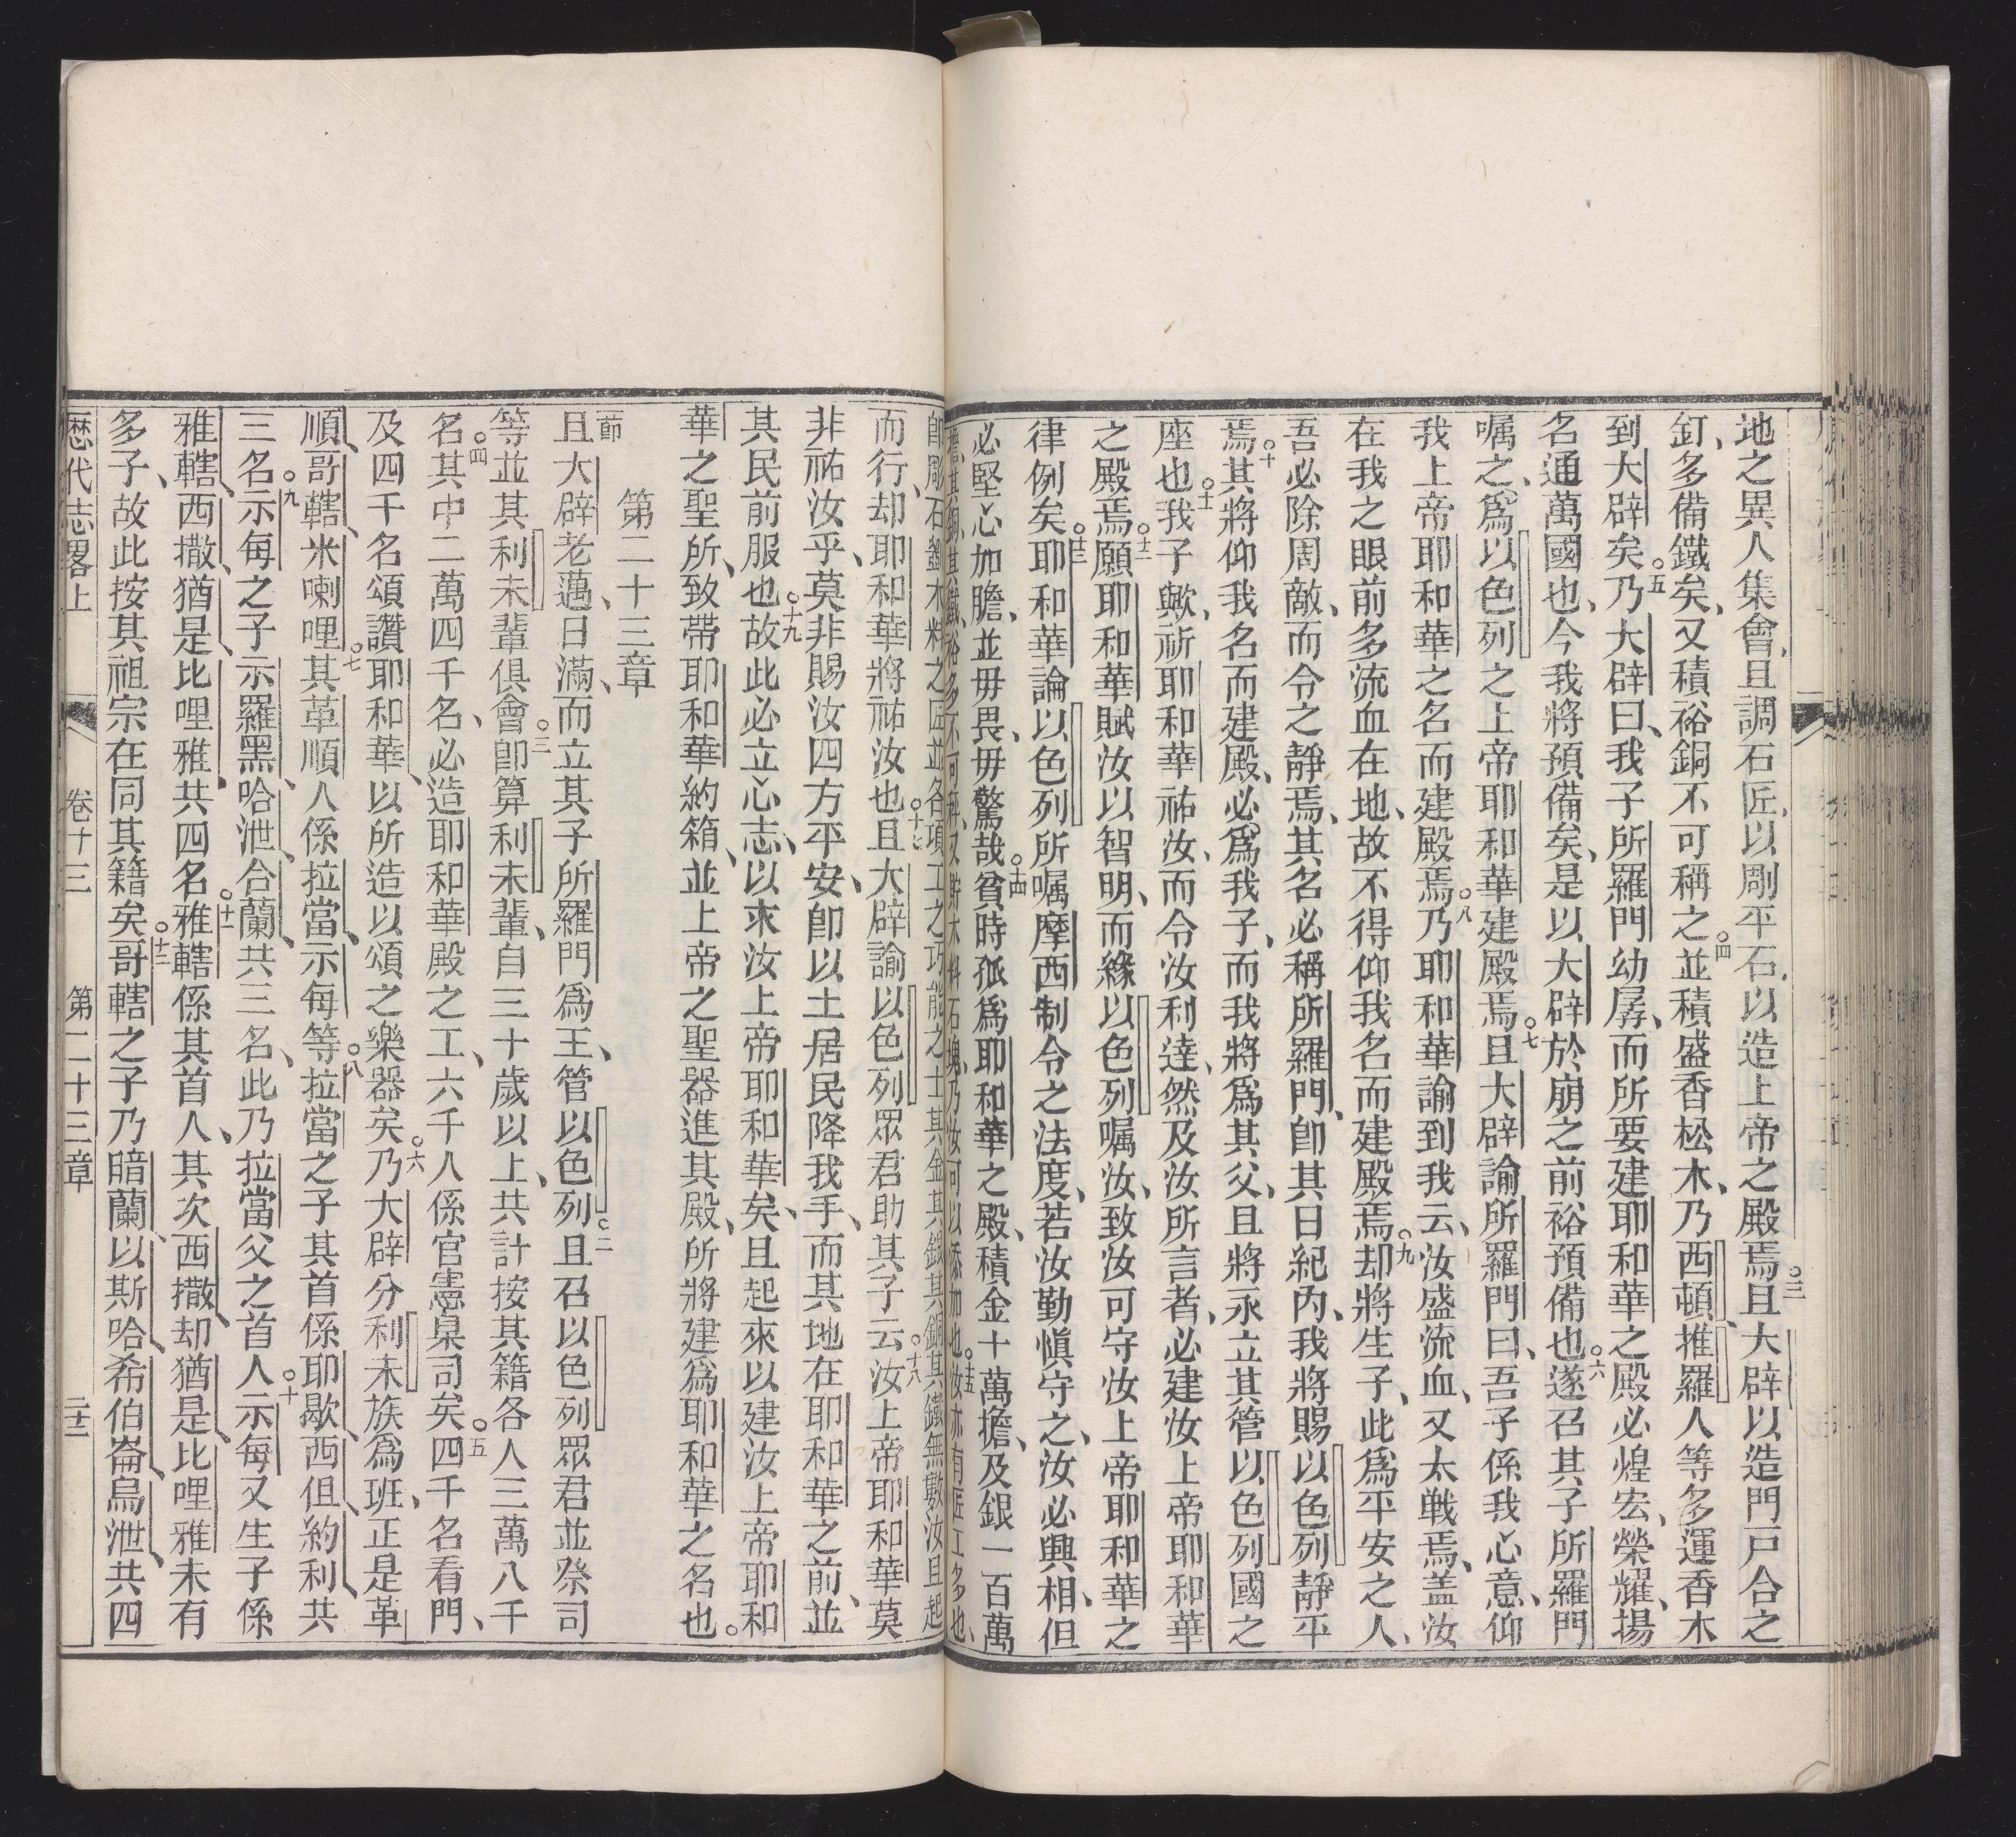 地之異人集會、且調石匠、以剛平石、以造上帝之殿焉。三且大辟以造門戸合之
釘、多備鐵矣、又積裕銅不可稱之。四並積盛香松木、乃西頓、推羅人等多運香木
到大辟矣。五乃大辟曰、我子所羅門幼孱、而所要建耶和華之殿必煌宏、榮耀、揚
名通萬國也、今我將預備矣、是以大辟於崩之前裕預備也。六遂召其子所羅門
嘱之、爲以色列之上帝耶和華建殿焉。七且大辟諭所羅門曰、吾子係我心意、仰
我上帝耶和華之名而建殿焉。八乃耶和華諭到我云、汝盛流血、又太戦焉、盖汝
在我之眼前多流血在地、故不得仰我名而建殿焉。九却將生子、此爲平安之人、
吾必除周敵、而令之靜焉、其名必稱所羅門、卽其日紀內、我將賜以色列靜平
焉。十其將仰我名而建殿、必爲我子、而我將爲其父、且將永立其管以色列國之
座也。十一我子歟、祈耶和華祐汝、而令汝利達、然及汝所言者、必建汝上帝耶和華
之殿焉。十二願耶和華賦汝以智明、而緣以色列嘱汝、致汝可守汝上帝耶和華之
律例矣。十三耶和華論以色列所嘱摩西制令之法度、若汝勤愼守之、汝必興相、但
必堅心加膽、並毋畏、毋驚哉。十四貧時孤爲耶和華之殿、積金十萬擔、及銀一百萬
擔、其銅其鐵、裕多不可稱、又貯木料石塊、乃汝可以添加也。十五汝亦有匠工多也、
卽彫石鏨木料之匠並各項工之巧能之士其金其銀其銅其鐵無數汝且起
而行、却耶和華將祐汝也。十七且大辟諭以色列眾君助其子云。十八汝上帝耶和華莫
非祐汝乎、莫非賜汝四方平安、卽以土居民降我手、而其地在耶和華之前、並
其民前服也。十九故此必立心志、以求汝上帝耶和華矣、且起來以建汝上帝耶和
華之聖所、致帶耶和華約箱、並上帝之聖器進其殿、所將建爲耶和華之名也。
第二十三章
一節且大辟老邁、日滿、而立其子所羅門爲王、管以色列。二且召以色列眾君並祭司
等並其利未輩俱會。三卽算利未輩、自三十歲以上、共計按其籍各人三萬八千
名。四其中二萬四千名、必造耶和華殿之工、六千人係官憲臬司矣。五四千名看門、
及四千名頌讚耶和華、以所造以頌之樂器矣。六乃大辟分利未族爲班、正是革
順、哥轄、米喇哩。七其革順人係拉當、示每等。八拉當之子其首係耶歇、西但、約利共
三名。九示每之子、示羅黑、哈泄、合蘭、共三名、此乃拉當、父之首人。十示每又生子係
雅轄、西撒、猶是、比哩雅、共四名。十一雅轄係其首人、其次西撒、却猶是、比哩雅未有
多子、故此按其祖宗在同其籍矣。十二哥轄之子乃暗蘭、以斯哈、希伯崙、烏泄、共四
歷代志畧上 卷十三 第二十三章 三十二